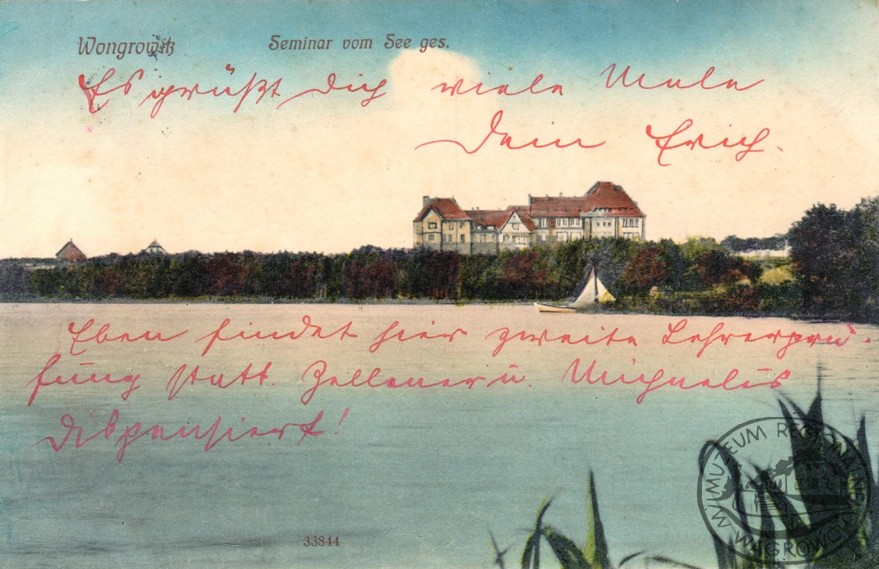 Wongrowitz
Seminar vom See ges.
Es grüßt Dich viele Male
Dein Erich.
Eben findet hier zweite Lehrerprü-
fung statt. Zellener u. Michaelis
dispensiert!
33844
MUZEUM REGIONALNE
W WĄGROWCU